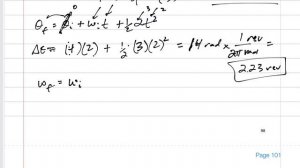 θf = θi + ωit + ½αt²
Δθ = (4)(2) + ½(3)(2)² = 14 rad × 1 rev / 2π rad =
2.23 rev
ωf = ωi
Page 101